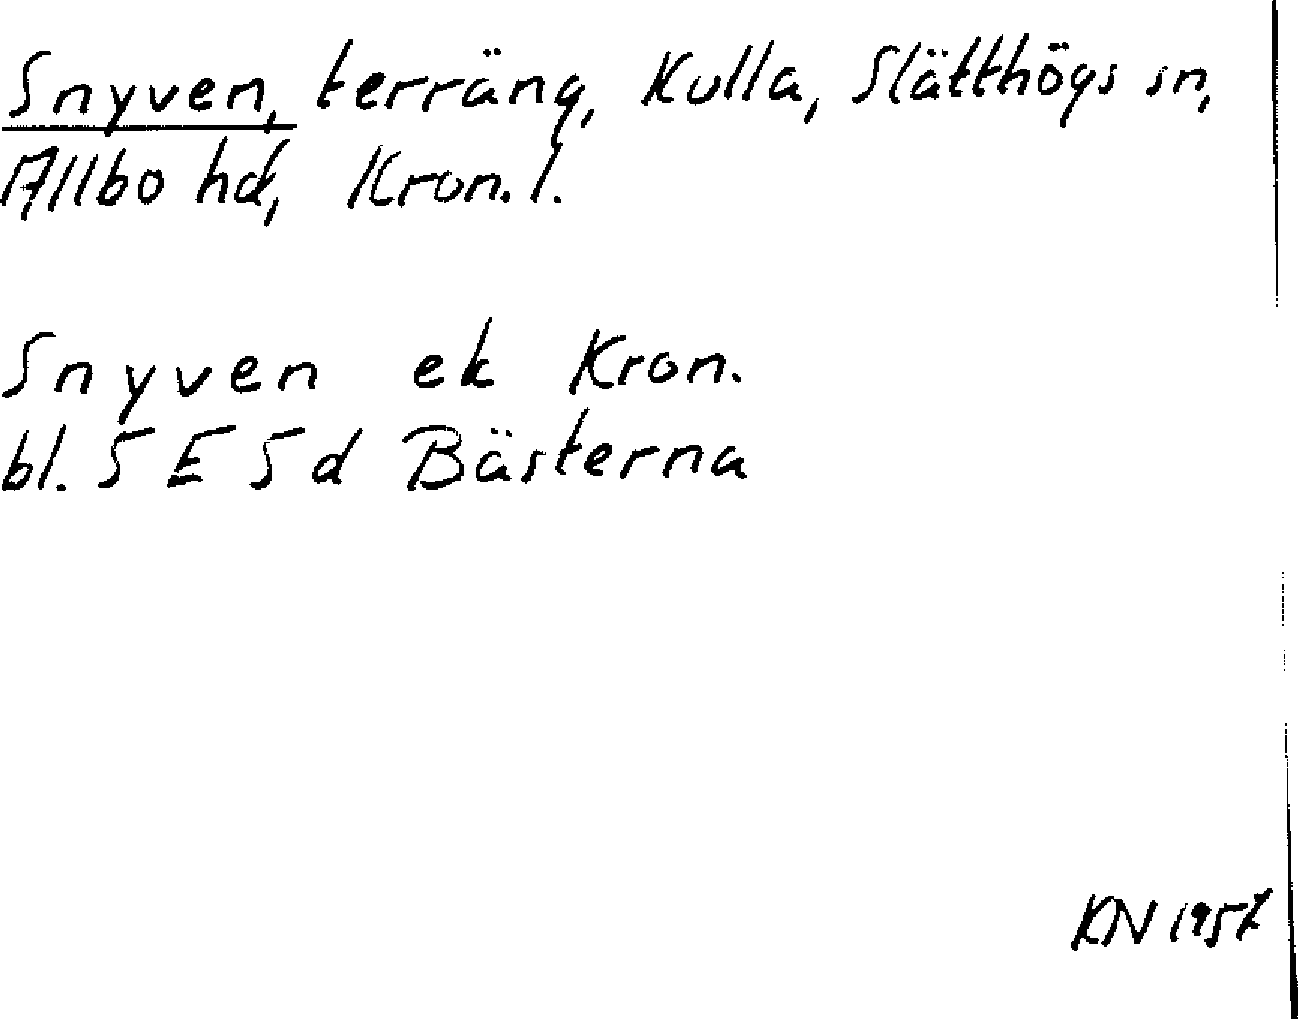 Snyven, terräng, Kulla, Slätthögs sn,
Allbo hd, Kron. l.
Snyven ek Kron.
bl. 5 E 5 d Bästerna
KN 1957